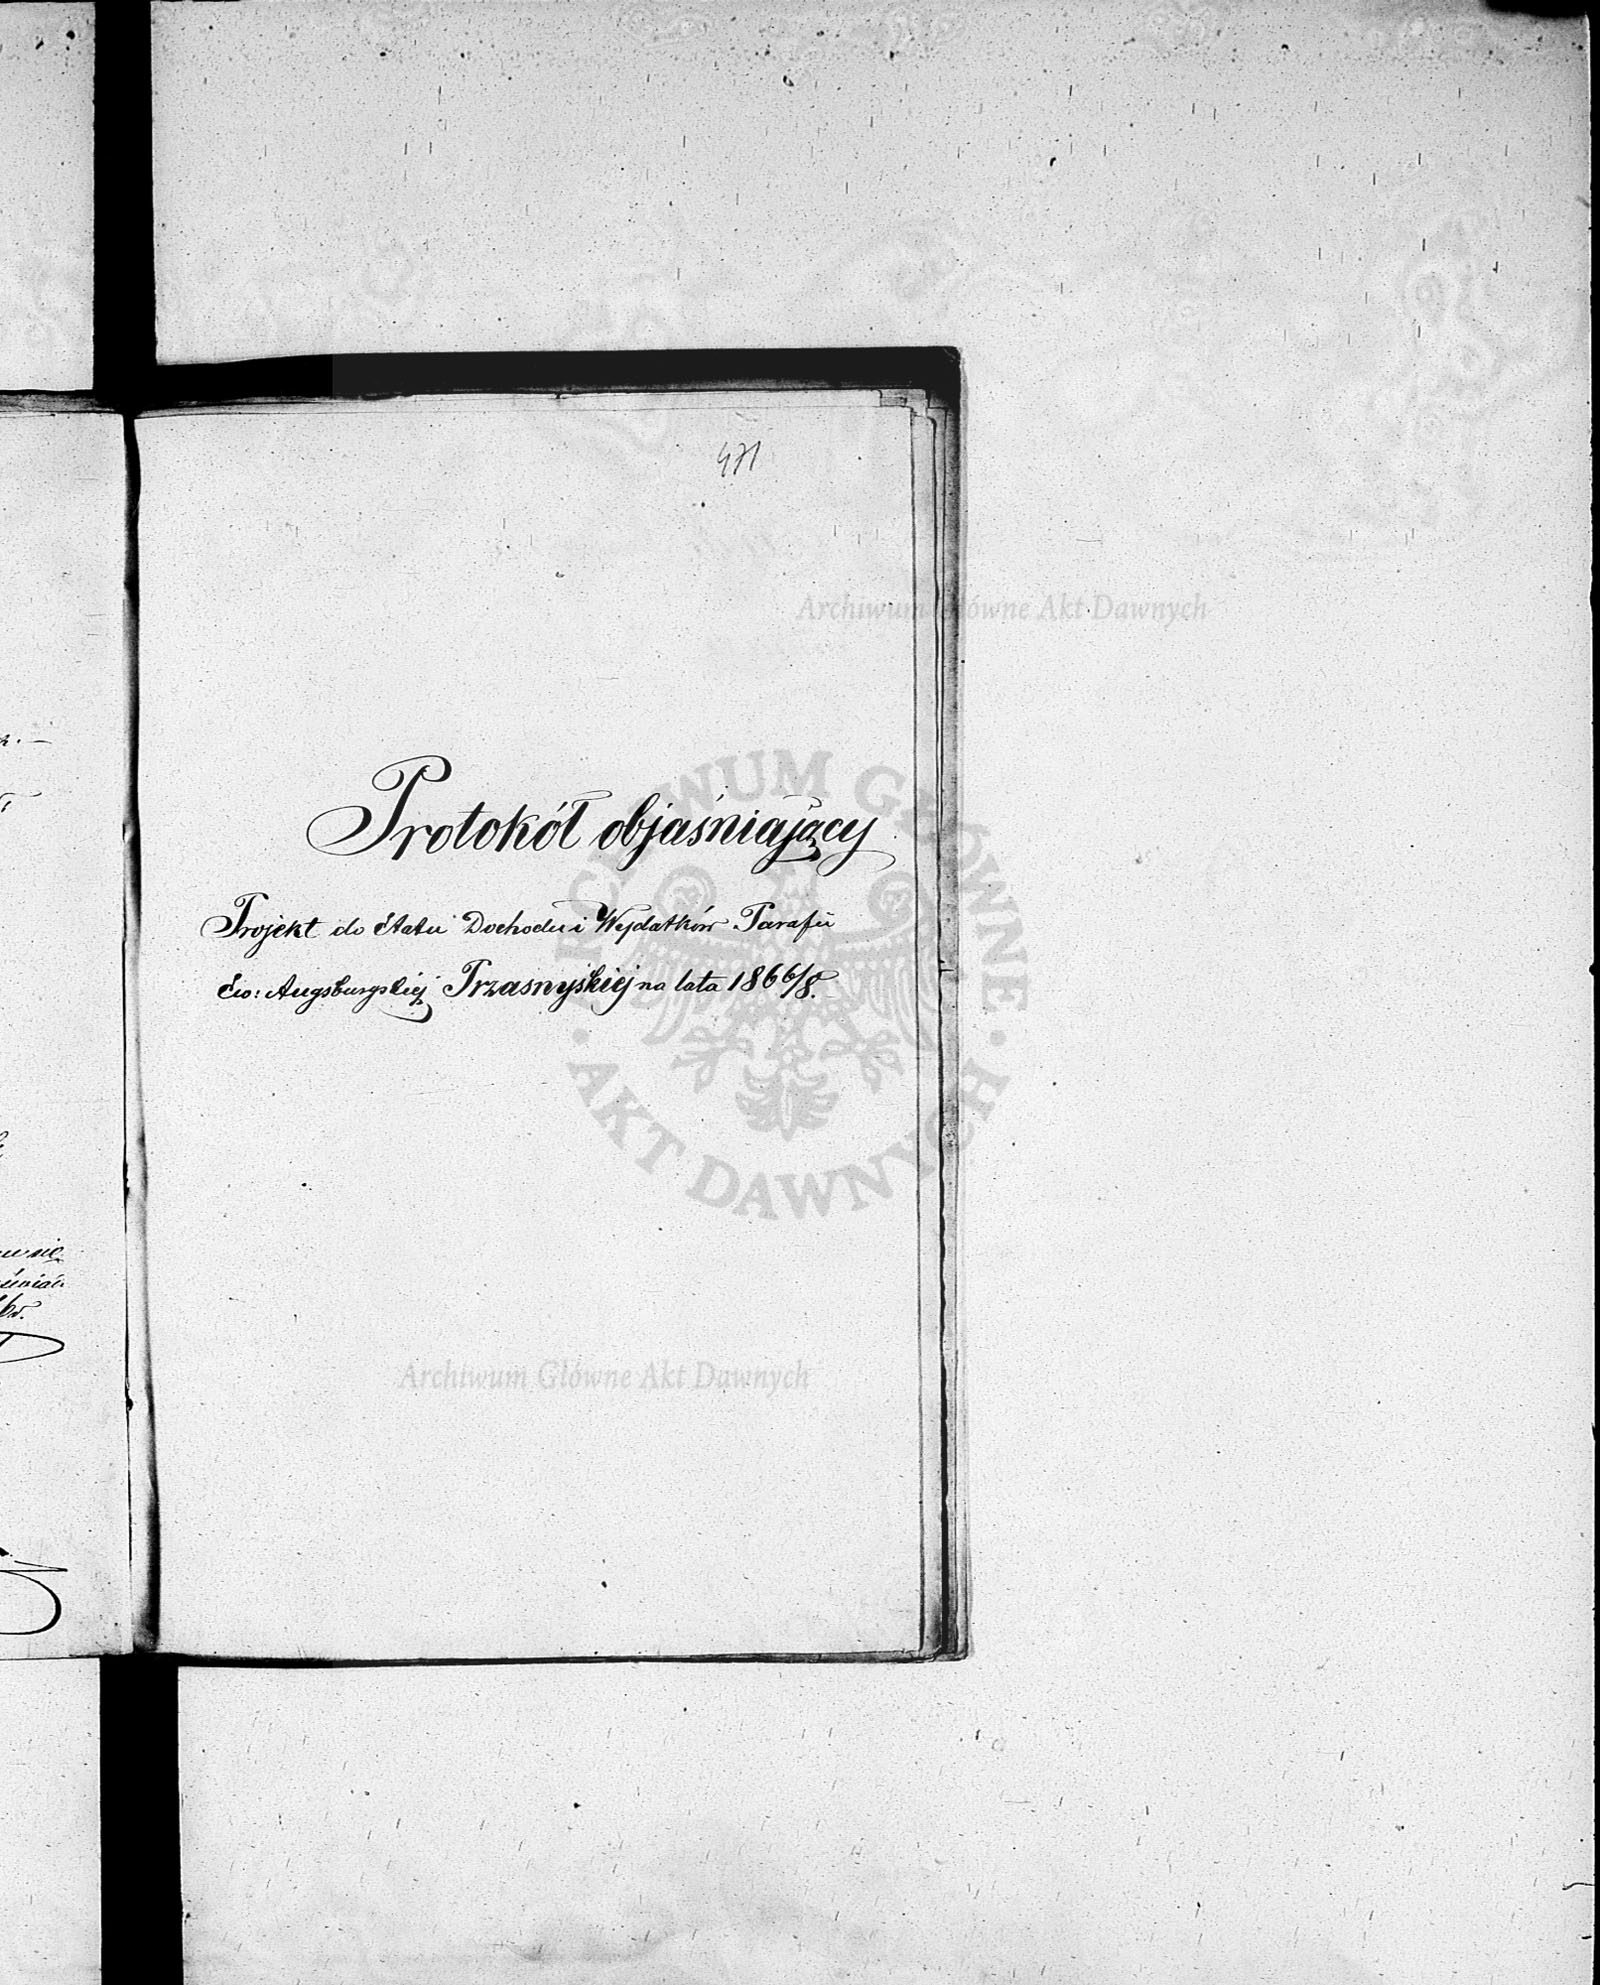 471
Protokół objaśniający
Projekt do Etatu Dochodu i Wydatków Parafii
Ew: Augsburgskiej Przasnyskiej na lata 1866/8.
Archiwum Główne Akt Dawnych
ARCHIWUM GŁÓWNE
· AKT DAWNYCH ·
Archiwum Główne Akt Dawnych